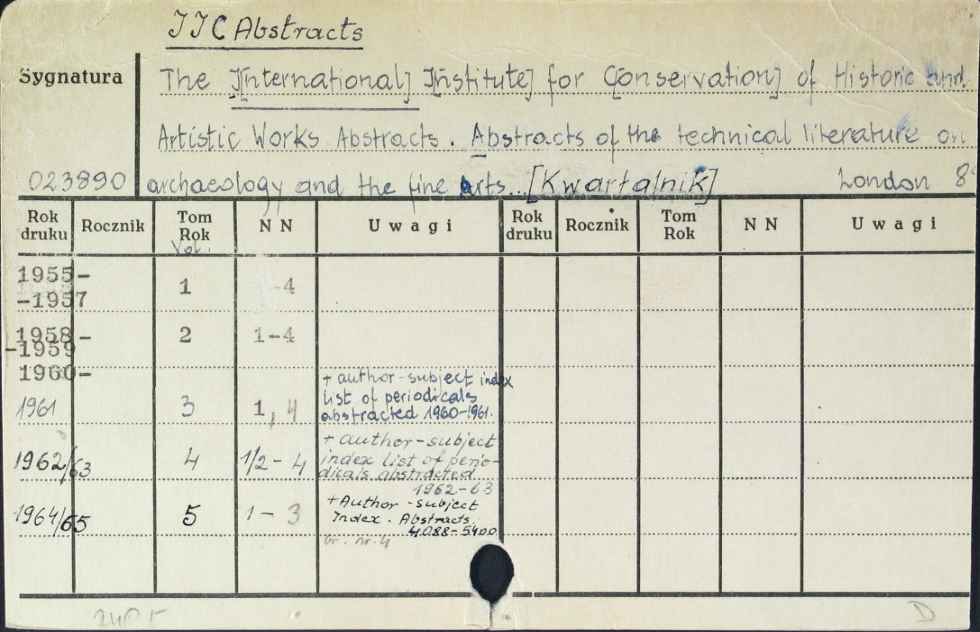 IIC Abstracts
Sygnatura
The International Institute for Conservation of Historic and
Artistic Works Abstracts. Abstracts of the technical literature on
023890 archaeology and the fine arts...[Kwartalnik] London 8°
Rok druku Rocznik Tom Rok NN Uwagi Rok druku Rocznik Tom Rok NN Uwagi
Vol.
1955-
-1957 1 -4
1958- 2 1-4
-1959
1960-
1961 3 1, 4 + author-subject index
list of periodicals
abstracted 1960-1961.
1962/63 4 1/2-4 + author-subject
index list of perio-
dicals abstracted
1962-63
1964/65 5 1-3 + Author-subject
Index. Abstracts
4088-5400
br. nr. 4
D